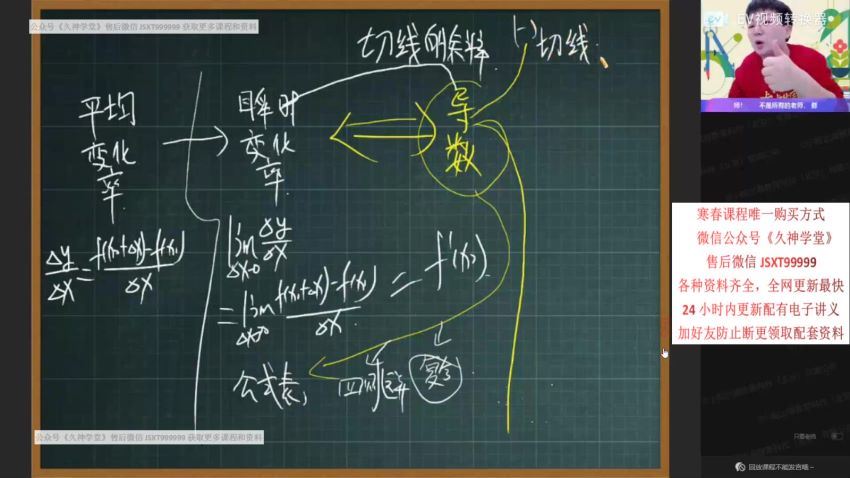 公众号《久神学堂》售后微信 JSXT999999 获取更多课程和资料
EV视频转换器
切线的斜率
(一)切线
平均
变化
率
瞬时
变化
率
导
数
Δy/Δx = f(x₀+Δx)-f(x₀)/Δx
lim Δx→0 Δy/Δx
= lim Δx→0 f(x₀+Δx)-f(x₀)/Δx = f'(x₀)
公式表,
四则运算
复合
师! 不是所有的老师,都
寒春课程唯一购买方式
微信公众号《久神学堂》
售后微信 JSXT99999
各种资料齐全，全网更新最快
24 小时内更新配有电子讲义
加好友防止断更领取配套资料
公众号《久神学堂》售后微信 JSXT999999 获取更多课程和资料
只看老师
回放课程不能发言哦~